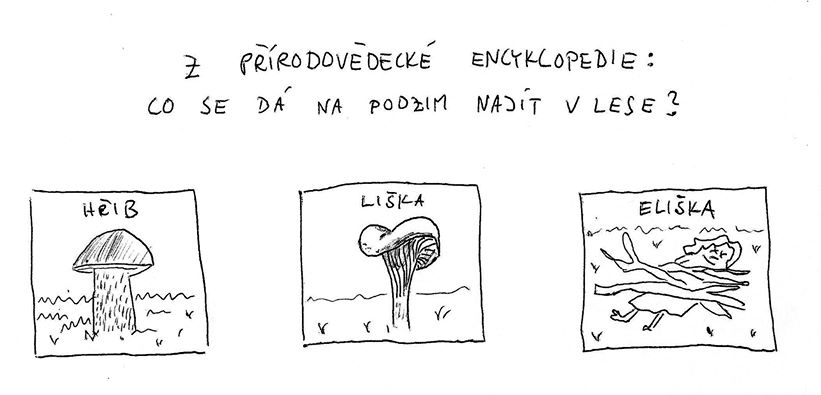 Z PŘÍRODOVĚDECKÉ ENCYKLOPEDIE:
CO SE DÁ NA PODZIM NAJÍT V LESE?
HŘIB
LIŠKA
ELIŠKA